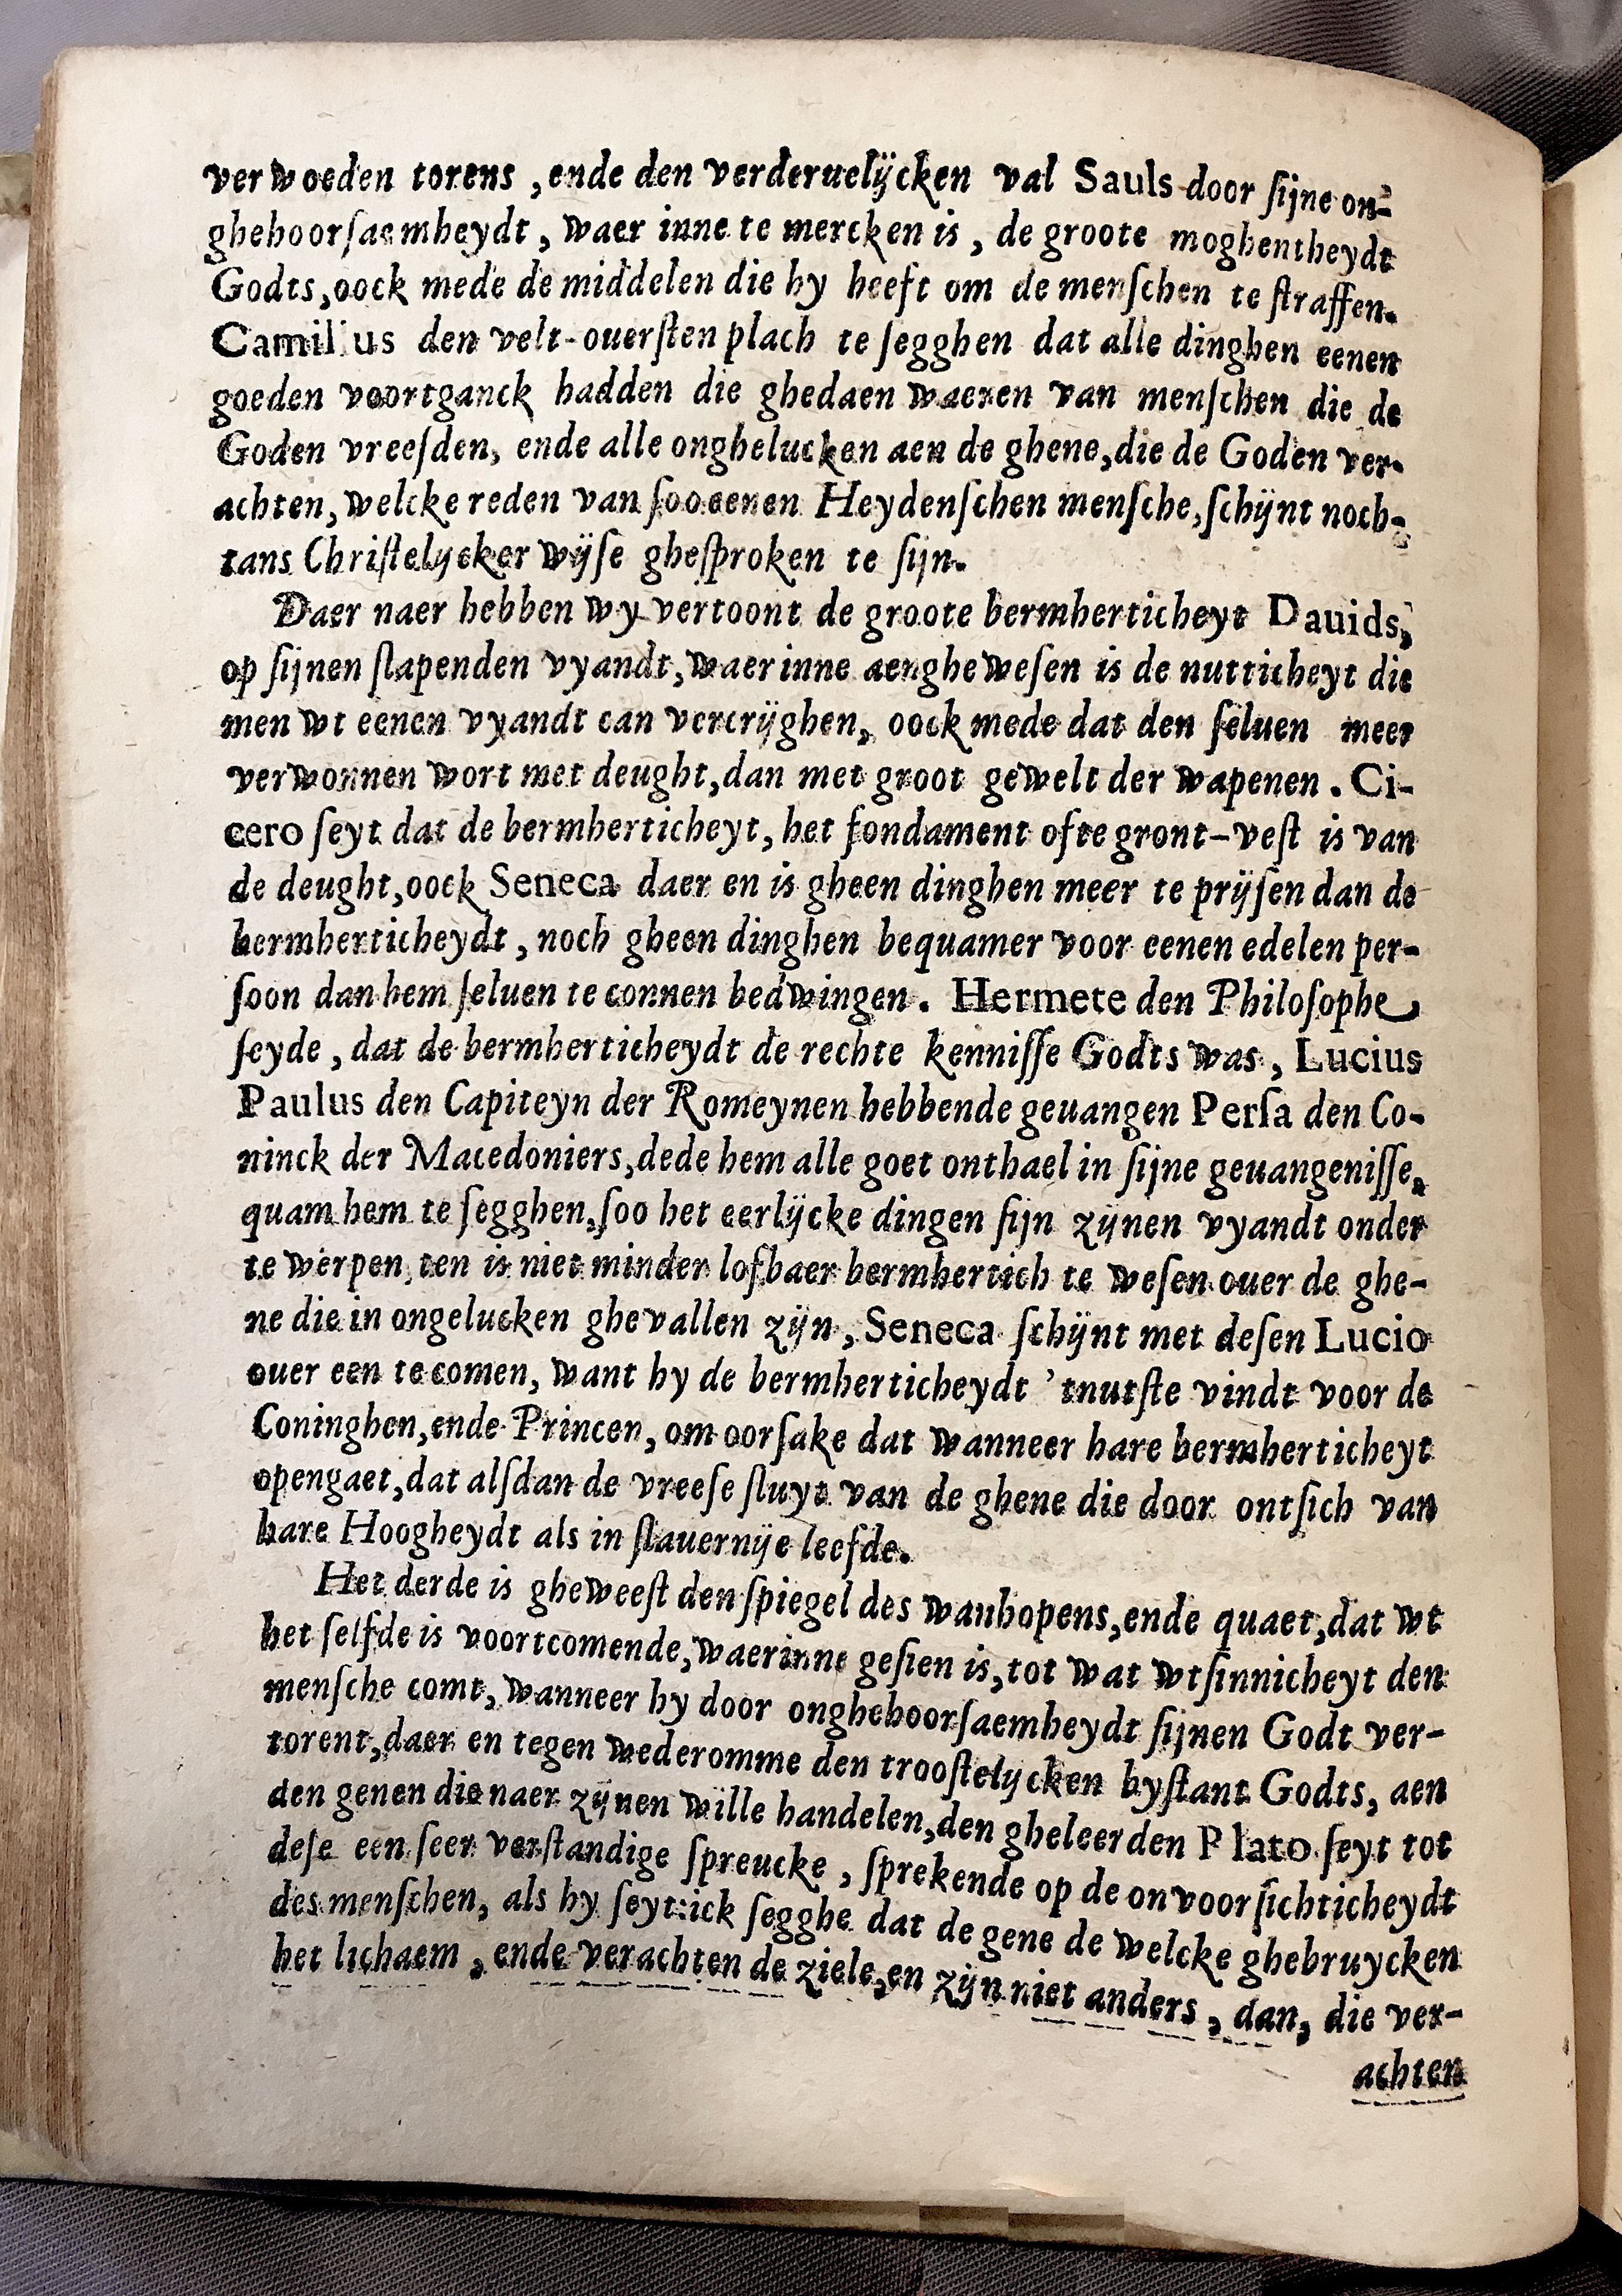 verwoeden torens, ende den verderuelijcken val Sauls door sijne on-
ghehoorsaemheydt, waer inne te mercken is, de groote moghentheydt
Godts, oock mede de middelen die hy heeft om de menschen te straffen.
Camillus den velt-ouersten plach te segghen dat alle dinghen eenen
goeden voortganck hadden die ghedaen waeren van menschen die de
Goden vreesden, ende alle onghelucken aen de ghene, die de Goden ver-
achten, welcke reden van soo eenen Heydenschen mensche, schijnt noch-
tans Christelijcker wijse ghesproken te sijn.
Daer naer hebben wy vertoont de groote bermherticheyt Dauids,
op sijnen slapenden vyandt, waer inne aenghewesen is de nutticheyt die
men wt eenen vyandt can vercrijghen, oock mede dat den seluen meer
verwonnen wort met deught, dan met groot gewelt der wapenen. Ci-
cero seyt dat de bermherticheyt, het fondament ofte gront-vest is van
de deught, oock Seneca daer en is gheen dinghen meer te prijsen dan de
bermherticheydt, noch gheen dinghen bequamer voor eenen edelen per-
soon dan hem seluen te connen bedwingen. Hermete den Philosophe
seyde, dat de bermherticheydt de rechte kennisse Godts was, Lucius
Paulus den Capiteyn der Romeynen hebbende geuangen Persa den Co-
ninck der Macedoniers, dede hem alle goet onthael in sijne geuangenisse,
quam hem te segghen, soo het eerlijcke dingen sijn zijnen vyandt onder
te werpen, ten is niet minder lofbaer bermhertich te wesen ouer de ghe-
ne die in ongelucken ghevallen zijn, Seneca schijnt met desen Lucio
ouer een te comen, want hy de bermherticheydt 'tnutste vindt voor de
Coninghen, ende Princen, om oorsake dat wanneer hare bermherticheyt
opengaet, dat alsdan de vreese sluyt van de ghene die door ontsich van
hare Hoogheydt als in slauernije leefde.
Het derde is gheweest den spiegel des wanhopens, ende quaet, dat wt
het selfde is voortcomende, waerinne gesien is, tot wat wtsinnicheyt den
mensche comt, wanneer hy door onghehoorsaemheydt sijnen Godt ver-
torent, daer en tegen wederomme den troostelijcken bystant Godts, aen
den genen die naer zijnen wille handelen, den gheleerden Plato seyt tot
dese een seer verstandige spreucke, sprekende op de onvoorsichticheydt
des menschen, als hy seyt: ick segghe dat de gene de welcke ghebruycken
het lichaem, ende verachten de ziele, en zijn niet anders, dan, die ver-
achten